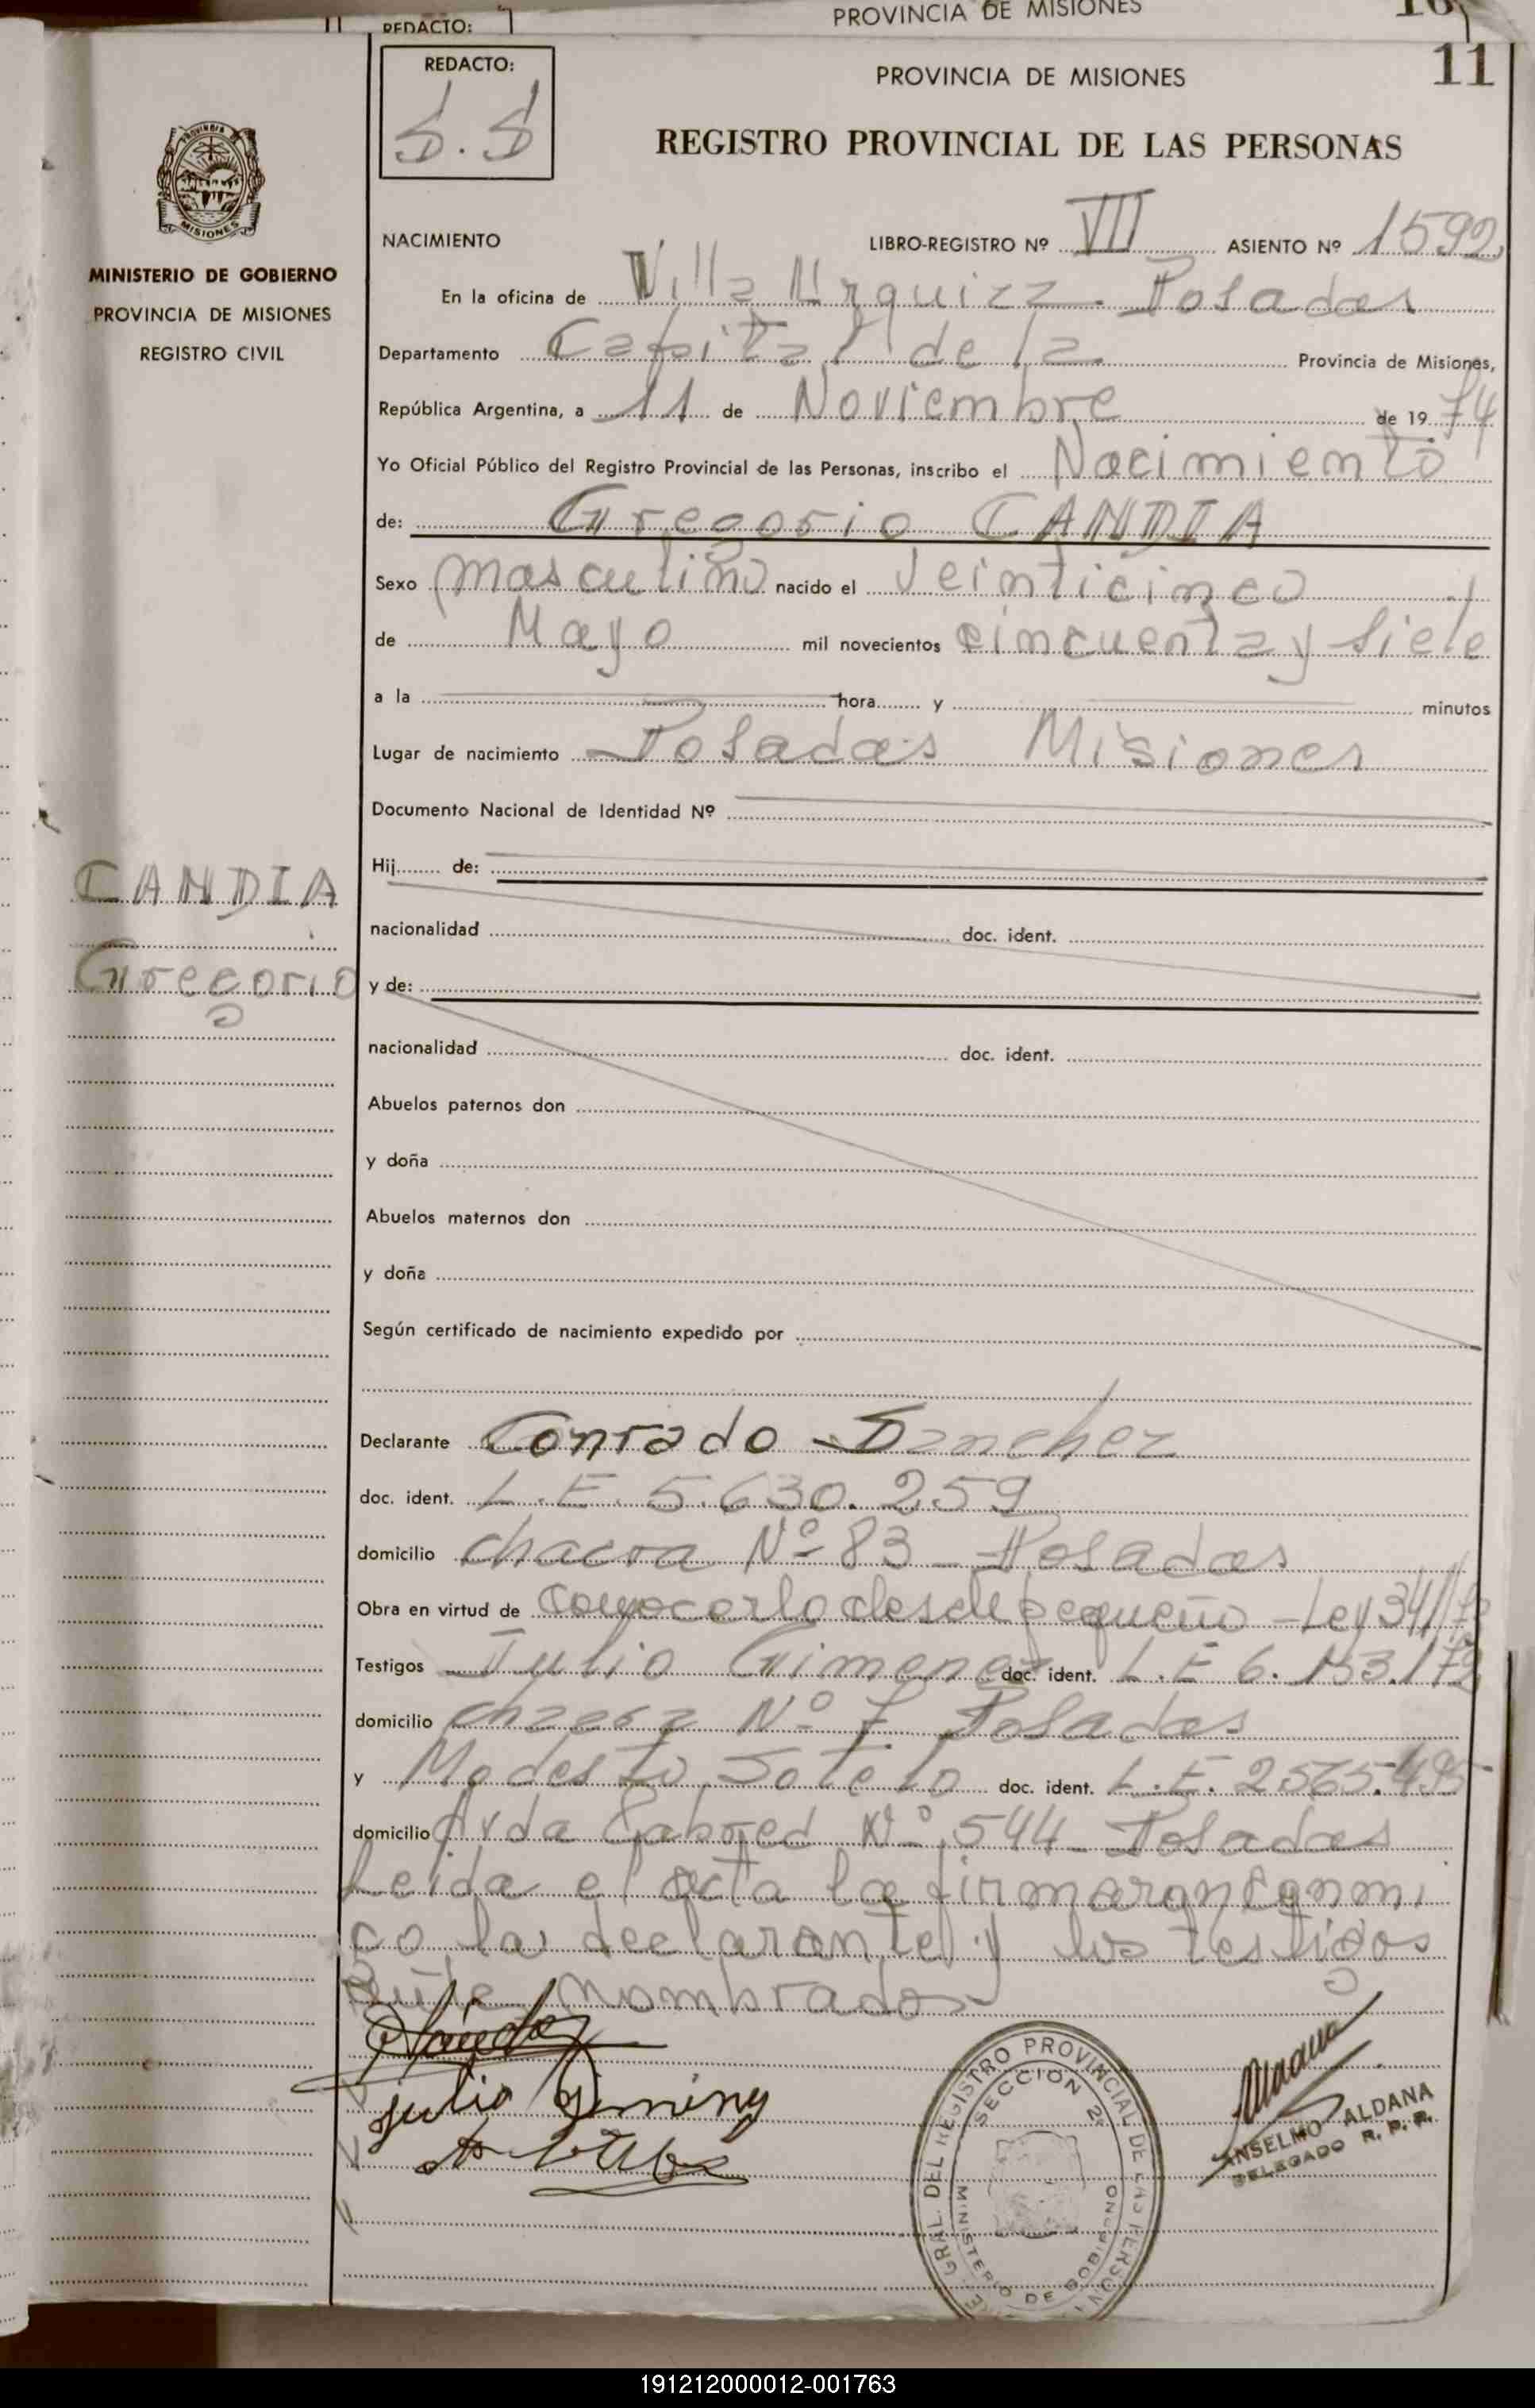 REDACTO:
PROVINCIA DE MISIONES
REDACTO:
S.S
PROVINCIA DE MISIONES
11
REGISTRO PROVINCIAL DE LAS PERSONAS
MISIONES
MINISTERIO DE GOBIERNO
PROVINCIA DE MISIONES
REGISTRO CIVIL
NACIMIENTO LIBRO-REGISTRO Nº VII ASIENTO Nº 1592
En la oficina de Villa Urquiza - Posadas
Departamento Capital de la Provincia de Misiones,
República Argentina, a 11 de Noviembre de 1974
Yo Oficial Público del Registro Provincial de las Personas, inscribo el Nacimiento
de: Gregorio CANDIA
Sexo masculino nacido el Veinticinco
de Mayo mil novecientos cincuenta y siete
a la hora y minutos
Lugar de nacimiento Posadas Misiones
Documento Nacional de Identidad Nº
CANDIA
Gregorio
Hij de:
nacionalidad doc. ident.
y de:
nacionalidad doc. ident.
Abuelos paternos don
y doña
Abuelos maternos don
y doña
Según certificado de nacimiento expedido por
Declarante Conrado Sanchez
doc. ident. L.E. 5.630.259
domicilio chacra Nº 83 - Posadas
Obra en virtud de conocerlo desde pequeño - Ley
Testigos Julio Gimenez doc. ident. L.E 6.153.172
domicilio chacra Nº 7 Posadas
y Modesto Sotelo doc. ident. L.E. 2565.495
domicilio Avda Cabred Nº 544 - Posadas
Leida el acta la firmaron conmi
go la declarante y los testigos
nombrados
Julio
REGISTRO PROVINCIAL DE LAS
SECCIÓN 2ª
MINISTERIO DE GOBIERNO
ANSELMO ALDANA
DELEGADO R. P. P.
191212000012-001763